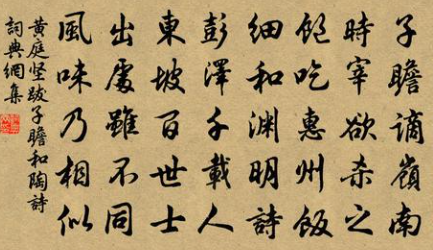 子瞻謫嶺南
時宰欲杀之
飽吃惠州飯
細和淵明詩
彭澤千載人
東坡百世士
出處雖不同
風味乃相似
黃庭坚跋子瞻和陶詩
詞典網集